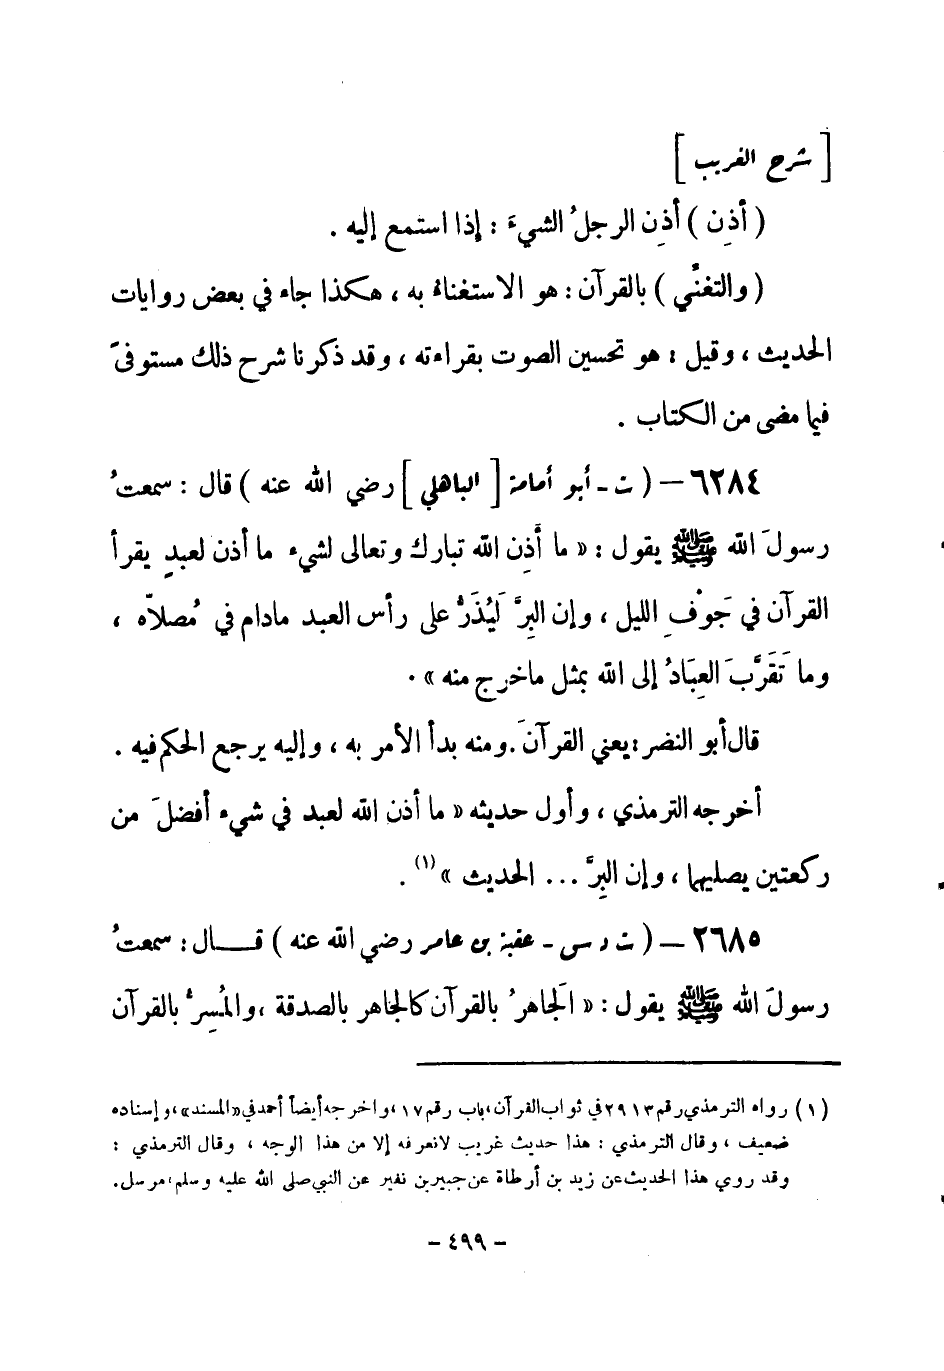 [ شرح الغريب ]
( أذِن ) أذِن الرجلُ الشيءَ : إذا استمع إليه .
( والتغنِّي ) بالقرآن : هو الاستغناءُ به ، هكذا جاء في بعض روايات
الحديث ، وقيل : هو تحسين الصوت بقراءته ، وقد ذكرنا شرح ذلك مستوفىً
فيما مضى من الكتاب .
٦٢٨٤ – ( ت - أبو أمامة [ الباهلي ] رضي الله عنه ) قال : سمعتُ
رسولَ الله ﷺ يقول : « ما أَذِن الله تبارك وتعالى لشيء ما أذن لعبدٍ يقرأ
القرآن في جَوْفِ الليل ، وإن البِرَّ لَيُذَرُّ على رأس العبد مادام في مُصلاّه ،
وما تَقَرَّبَ العِبَادُ إلى الله بمثل ماخرج منه » .
قال أبو النضر : يعني القرآنَ . ومنه بدأ الأمر به ، وإليه يرجع الحكم فيه .
أخرجه الترمذي ، وأول حديثه « ما أذن الله لعبد في شيء أفضلَ من
ركعتين يصليهما ، وإن البِرَّ ... الحديث » (١) .
٢٦٨٥ – ( ت د س - عقبة بن عامر رضي الله عنه ) قـــال : سمعتُ
رسولَ الله ﷺ يقول : « الجَاهرُ بالقرآن كالجاهر بالصدقة ، والمُسِرُّ بالقرآن
(١) رواه الترمذي رقم ٢٩١٣ في ثواب القرآن ، باب رقم ١٧ ، واخرجه أيضاً أحمد في «المسند» ، وإسناده
ضعيف ، وقال الترمذي : هذا حديث غريب لانعرفه إلا من هذا الوجه ، وقال الترمذي :
وقد روي هذا الحديث عن زيد بن أرطاة عن جبير بن نفير عن النبي صلى الله عليه وسلم ، مرسل .
- ٤٩٩ -